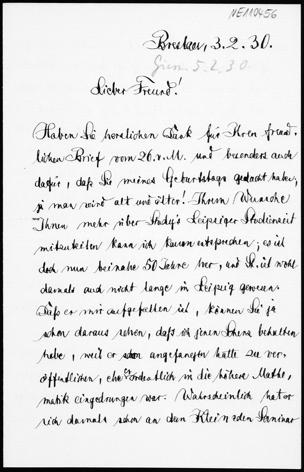 NE110456
Breslau, 3.2.30.
5.2.30
Lieber Freund!
Haben Sie herzlichen Dank für Ihren freund-
lichen Brief vom 26. v. M. und besonders auch
dafür, daß Sie meines Geburtstags gedacht haben,
ja man wird alt und älter! Ihrem Wunsche
Ihnen mehr über Study's Leipziger Studienzeit
mitzuteilen kann ich kaum entsprechen; es ist
doch nun beinahe 50 Jahre her, und St. ist wohl
damals auch nicht lange in Leipzig gewesen.
Daß er mir aufgefallen ist, können Sie ja
schon daraus sehen, daß ich jenen Scherz behalten
habe, weil er schon angefangen hatte zu ver-
öffentlichen, ehe er ordentlich in die höhere Mathe,
matik eingedrungen war. Wahrscheinlich hat er
sich damals schon an dem Klein'schen Seminar